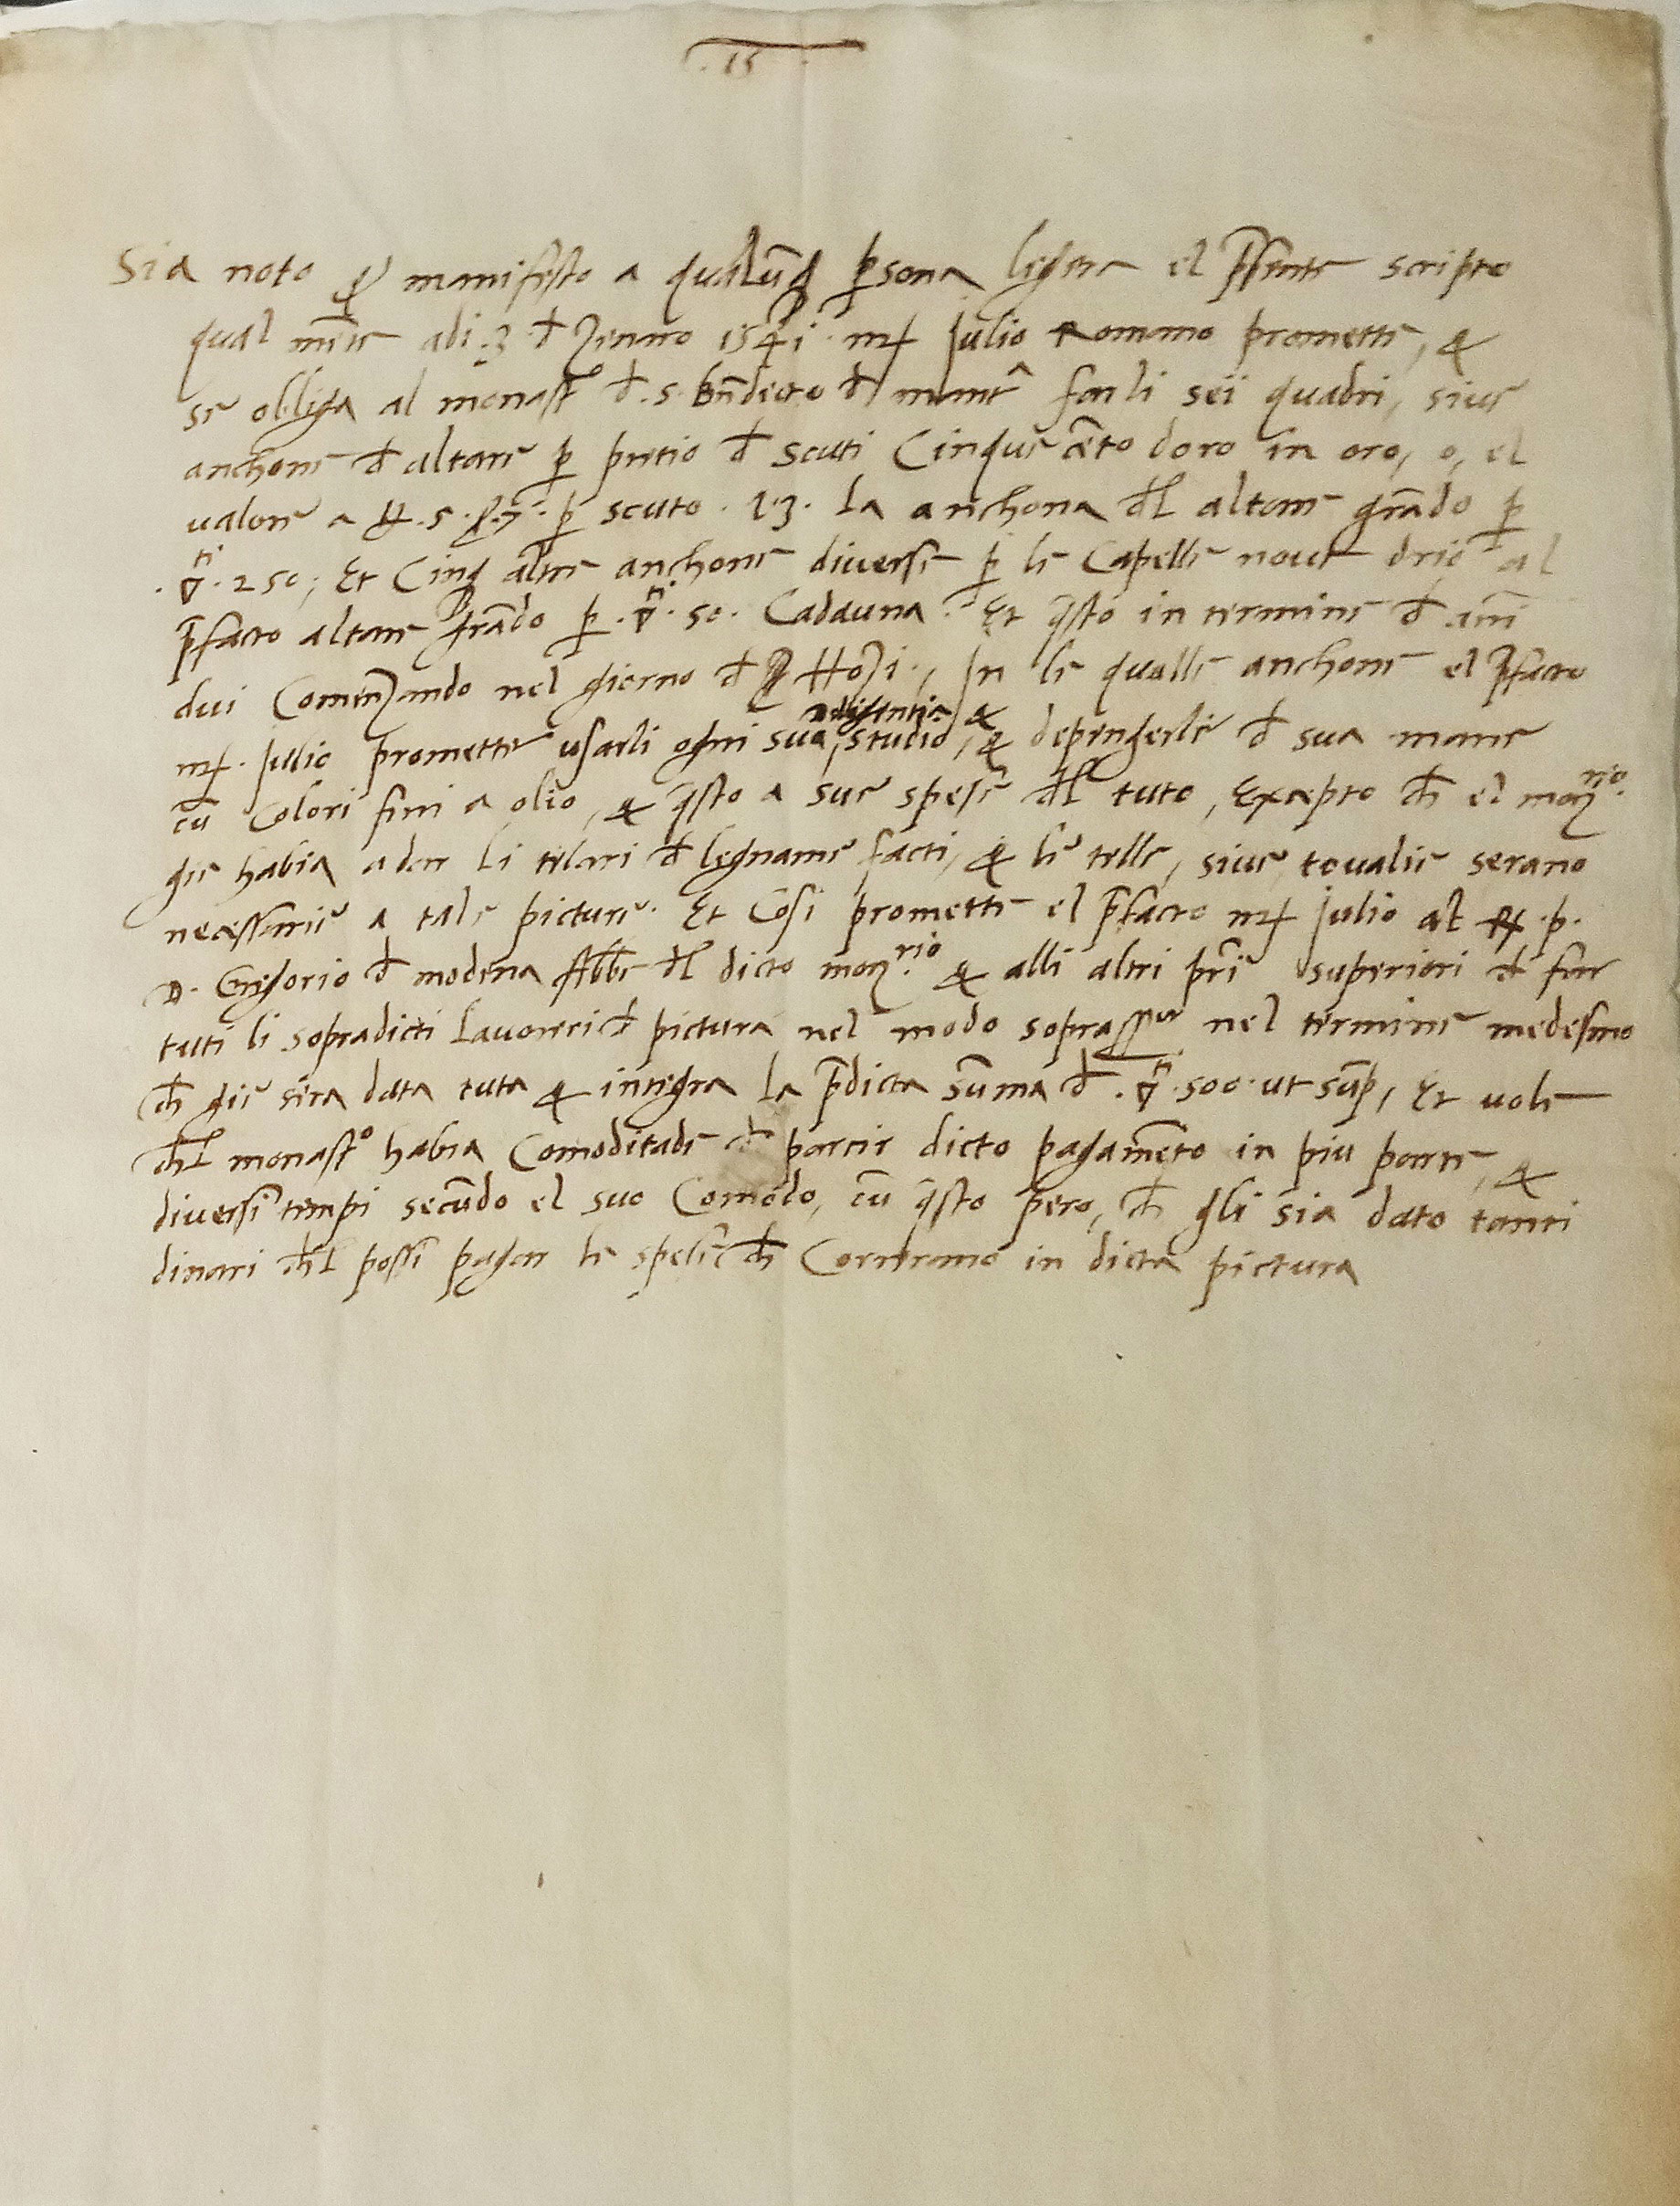 .15.
Sia noto & manifesto a qualūq p̄sona legera el p̄sente scripto
qual mēte adi .3. đ Zenaro 1541 mẜ Julio Romano promette, &
se obliga al monastº đ .s. Bn̄decto đ mantª farli sei quadri, sive
anchone đ altare p̄ pretio đ scuti Cinque cēto doro in oro, o, el
valore a ₶ .5. ẜ. 7. p̄ scuto . La anchona đl altare grādo p̄
.▽ti. 250, Et Cinq altre anchone diverse p̄ le Capelle nove drio al
p̄facto altare grādo p̄ .▽ti. 50. Cadauna. Et q̄sto in termine đ anni
dui Comenzando nel giorno đ Hozi, In le qualle anchone el p̄facto
mẜ. Julio promette usarli ogni sua, diligentia & studio, & depengerle đ sua mane
cū Colori fini a olio, & q̄sto a sue spese đl tuto, Excepto ch̄ el monrio.
gie habia a dar li telari đ legname facti, & le telle, sive, tovalie serano
necessarie a tale picture. Et Cosi promette el p̄facto mẜ Julio al R. p.
D. Gregorio đ modena Abb̄e đl dicto monrio & alli altri pr̄i superiori đ far
tutti li sopradicti lavoreri đ pictura nel modo soprass̄to nel termine medesmo
ch̄ gie sera data tuta & integra la p̄dicta sūma đ .▽ti. 500. ut sup̄, Et vole
ch̄l monastº habia Comoditade đ partir dicto pagamēto in piu parte, &
diversi tempi secūdo el suo Comodo, cū q̄sto pero, ch̄ gli sia dato tanti
dinari ch̄l possi pagar le spese ch̄ Correrano in dicta pictura